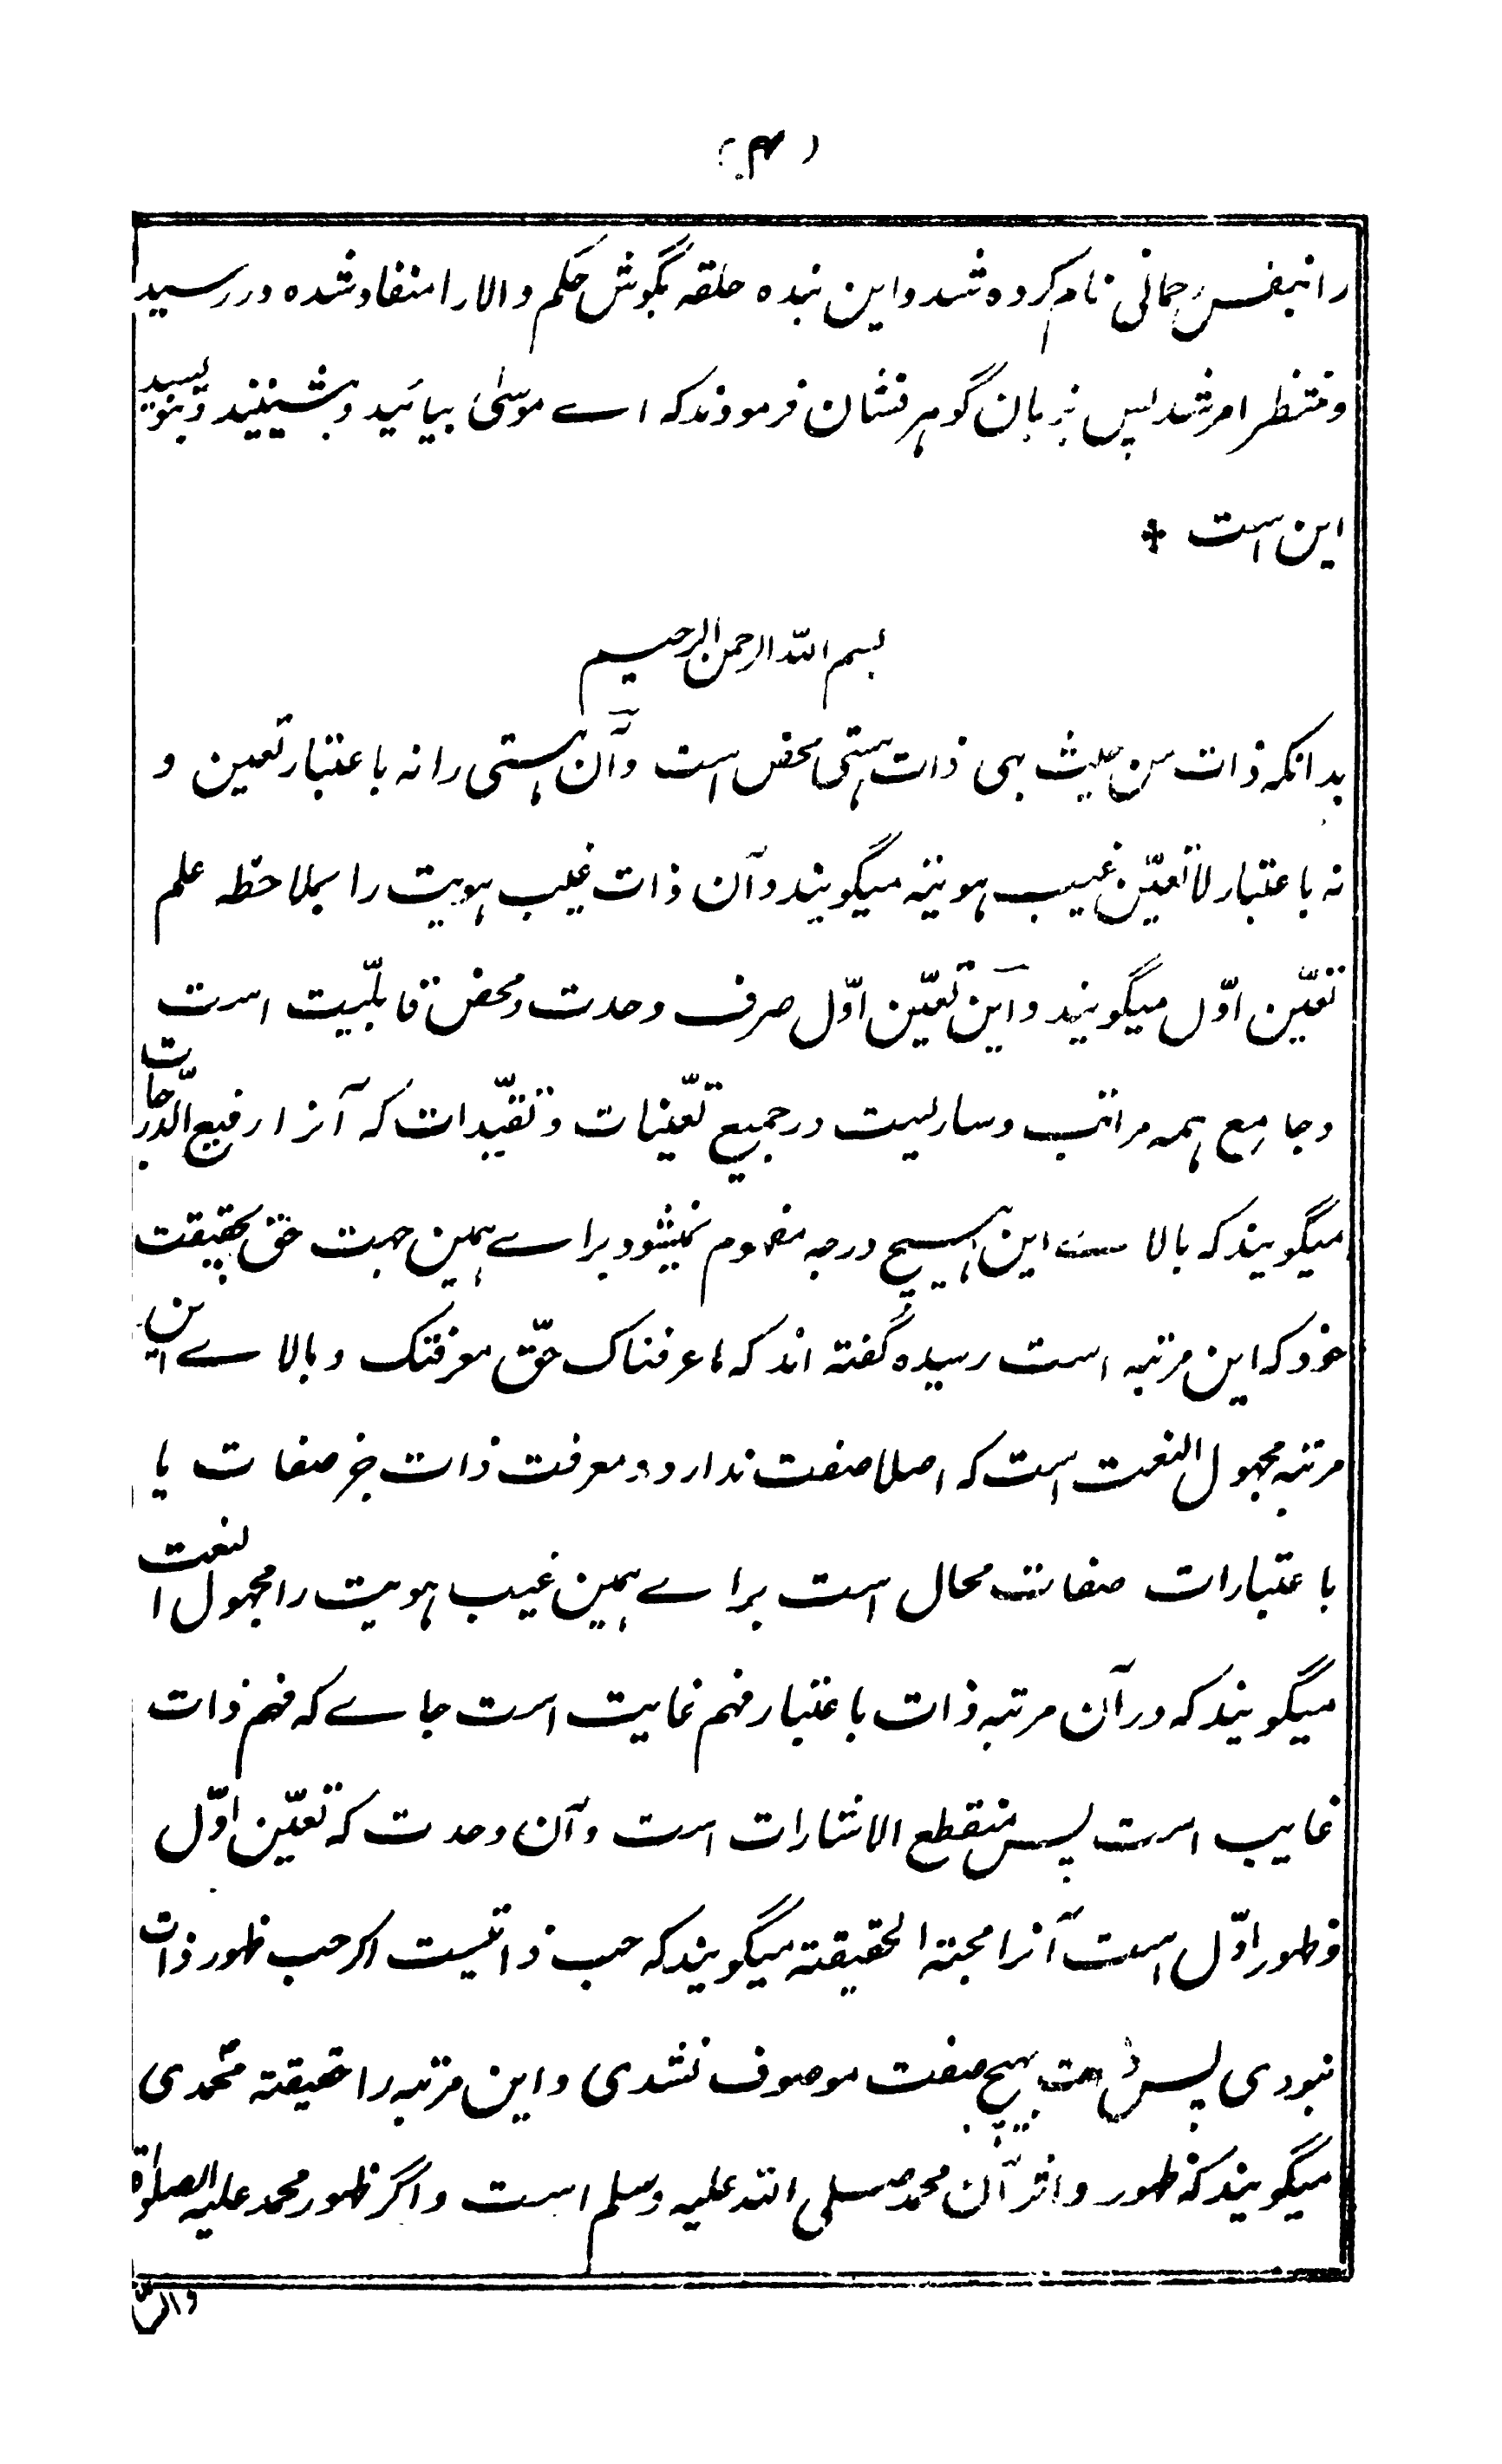 (۴)
را نبفس رحمانی نام کرده شد و این بنده حلقه بگوش حکم والا را منقاد شده در رسید
و منتظر امر شد پس بزبان گوهر فشان فرمودند که اے موسیٰ بیائید و بنشینید و بنویسید
این است
بسم الله الرحمن الرحیم
بدانکه ذات من حیث ہی ذات ہستی محض است و آن ہستی را نه باعتبار تعین و
نه باعتبار لا تعیّن غیب ہویته میگویند و آن ذات غیب ہویت را بملاحظه علم
تعیّن اوّل میگویند و این تعیّن اوّل صرف وحدت و محض قابلیّت است
و جامع ہمه مراتب و ساریست در جمیع تعیّنات و تقیّدات که آنرا رفیع الدّرجات
میگویند که بالاے این ہیچ درجه مفہوم نمیشود براے ہمین جہت حق بحقیقت
خود که این مرتبه است رسیده گفته اند که ما عرفناک حقّ معرفتک و بالاے این
مرتبه مجہول النعت است که اصلا صفت ندارد و معرفت ذات جز صفات یا
باعتبارات صفات محال است براے ہمین غیب ہویت را مجہول النعت
میگویند که در آن مرتبه ذات باعتبار فہم غایت است جاے که فہم ذات
غایب است پس منقطع الاشارات است و آن وحدت که تعیّن اوّل
و ظہور اوّل است آنرا محبته الحقیقته میگویند که حب ذاتیست اکر حب ظہور ذات
نبودی پس ذات بہیچ صفت موصوف نشدی و این مرتبه را حقیقته محمدی
میگویند که ظہور و اثر آن محمد صلی الله علیه وسلم است و اگر ظہور محمد علیه الصلوٰة
والس